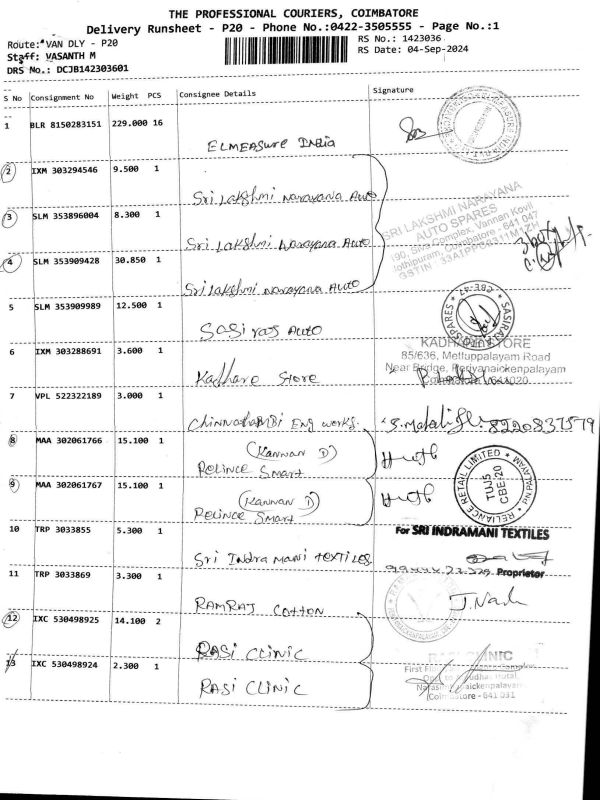 THE PROFESSIONAL COURIERS, COIMBATORE
Delivery Runsheet - P20 - Phone No.:0422-3505555 - Page No.:1
Route: VAN DLY - P20
RS No.: 1423036
Staff: VASANTH M
RS Date: 04-Sep-2024
DRS No.: DCJB142303601
S No Consignment No Weight PCS Consignee Details Signature
1 BLR 8150283151 229.000 16
ELMEASURE INDIA
2 IXM 303294546 9.500 1
Sri Lakshmi Narayana Auto
3 SLM 353896004 8.300 1
Sri Lakshmi Narayana Auto
SRI LAKSHMI NARAYANA
AUTO SPARES
190, Siva Complex, Vannan Kovil
Jothipuram, Coimbatore - 641 047
4 SLM 353909428 30.850 1
Sri Lakshmi Narayana Auto
5 SLM 353909989 12.500 1
Sasi raj Auto
6 IXM 303288691 3.600 1
Kadhare Store
85/636, Mettuppalayam Road
Near Bridge, Periyanaickenpalayam
Coimbatore - 641020
7 VPL 522322189 3.000 1
Chinnathambi Eng works.
8220837579
8 MAA 302061766 15.100 1
(Kannan D)
Relince Smart
9 MAA 302061767 15.100 1
(Kannan D)
Relince Smart
RELIANCE RETAIL LIMITED
TUJ5
CBE-20
10 TRP 3033855 5.300 1
Sri Indra Mani Textiles
For SRI INDRAMANI TEXTILES
Proprietor
11 TRP 3033869 3.300 1
RAMRAJ COTTON
12 IXC 530498925 14.100 2
RASI CLINIC
13 IXC 530498924 2.300 1
RASI CLINIC
RASI CLINIC